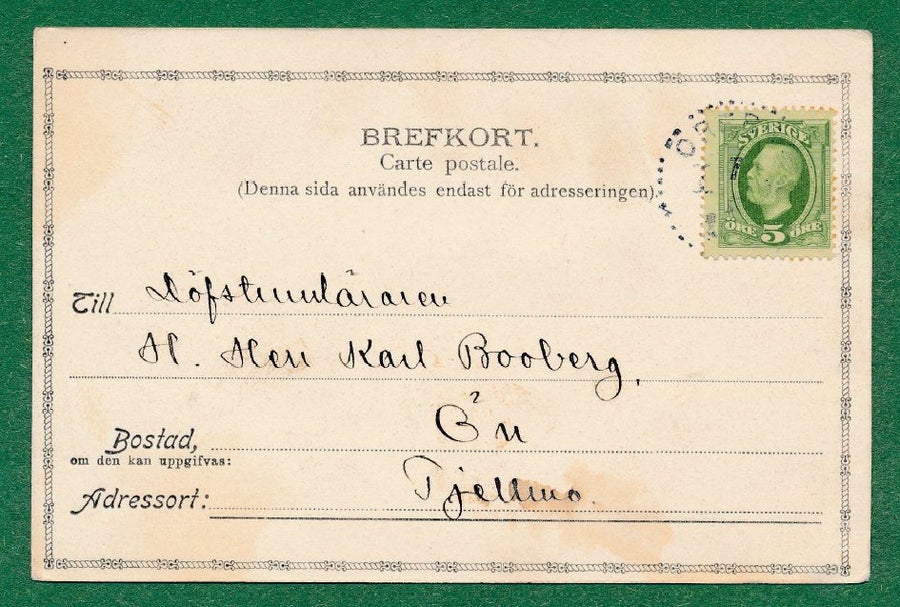 BREFKORT.
Carte postale.
(Denna sida användes endast för adresseringen).
SVERIGE
ÖRE 5 ÖRE
Till
H. Herr Karl Booberg,
Ön
Bostad,
om den kan uppgifvas:
Adressort: Tjellmo.